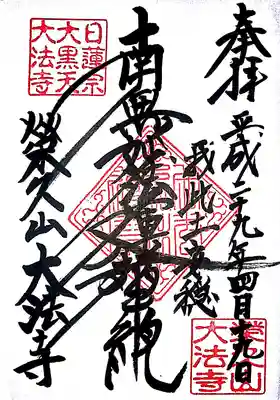 奉拝
平成二十九年四月十九日
我此土安穏
南無妙法蓮華経
栄久山大法寺
日蓮宗
大黒天
大法寺
栄久山
大法寺